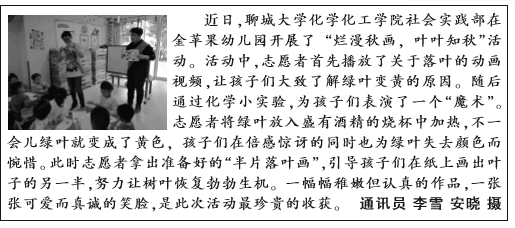 近日,聊城大学化学化工学院社会实践部在
金苹果幼儿园开展了“烂漫秋画,叶叶知秋”活
动。活动中,志愿者首先播放了关于落叶的动画
视频,让孩子们大致了解绿叶变黄的原因。随后
通过化学小实验,为孩子们表演了一个“魔术”。
志愿者将绿叶放入盛有酒精的烧杯中加热,不一
会儿绿叶就变成了黄色,孩子们在倍感惊讶的同时也为绿叶失去颜色而
惋惜。此时志愿者拿出准备好的“半片落叶画”,引导孩子们在纸上画出叶
子的另一半,努力让树叶恢复勃勃生机。一幅幅稚嫩但认真的作品,一张
张可爱而真诚的笑脸,是此次活动最珍贵的收获。 通讯员 李雪 安晓 摄